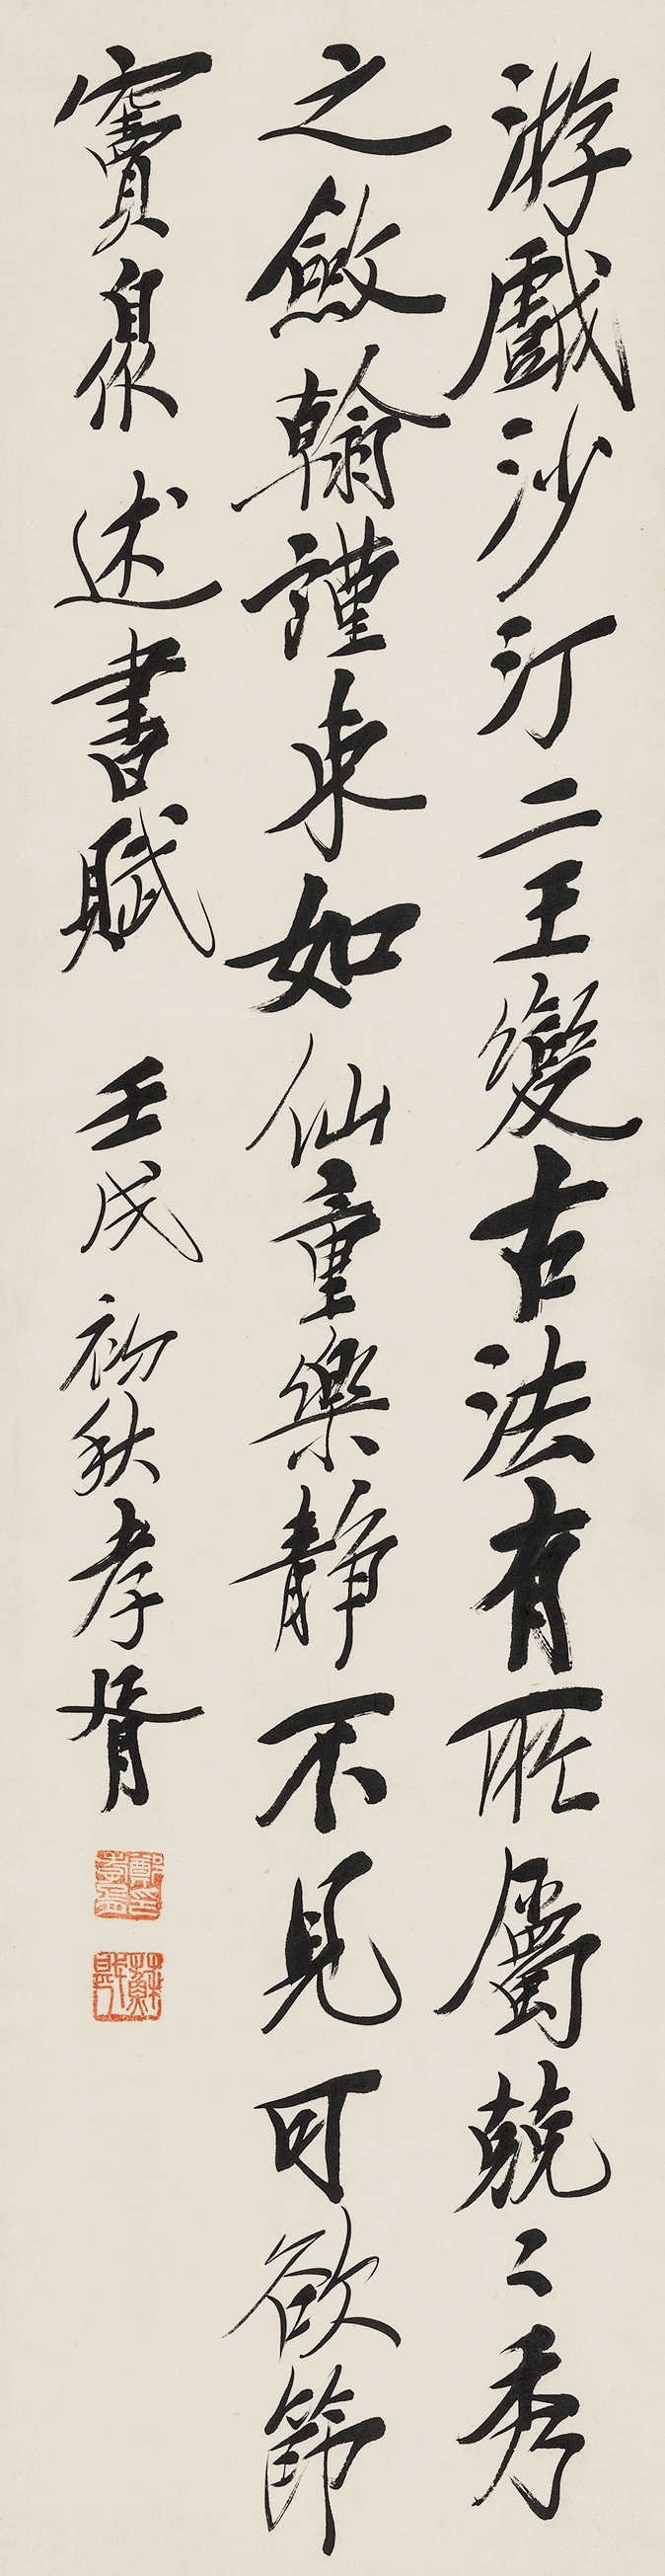 游戲沙汀二王變古法有所屬兢〻秀
之斂翰謹束如仙童樂靜不見可欲節
竇臮述書賦 壬戌初秋孝胥
鄭孝胥印
蘇戡